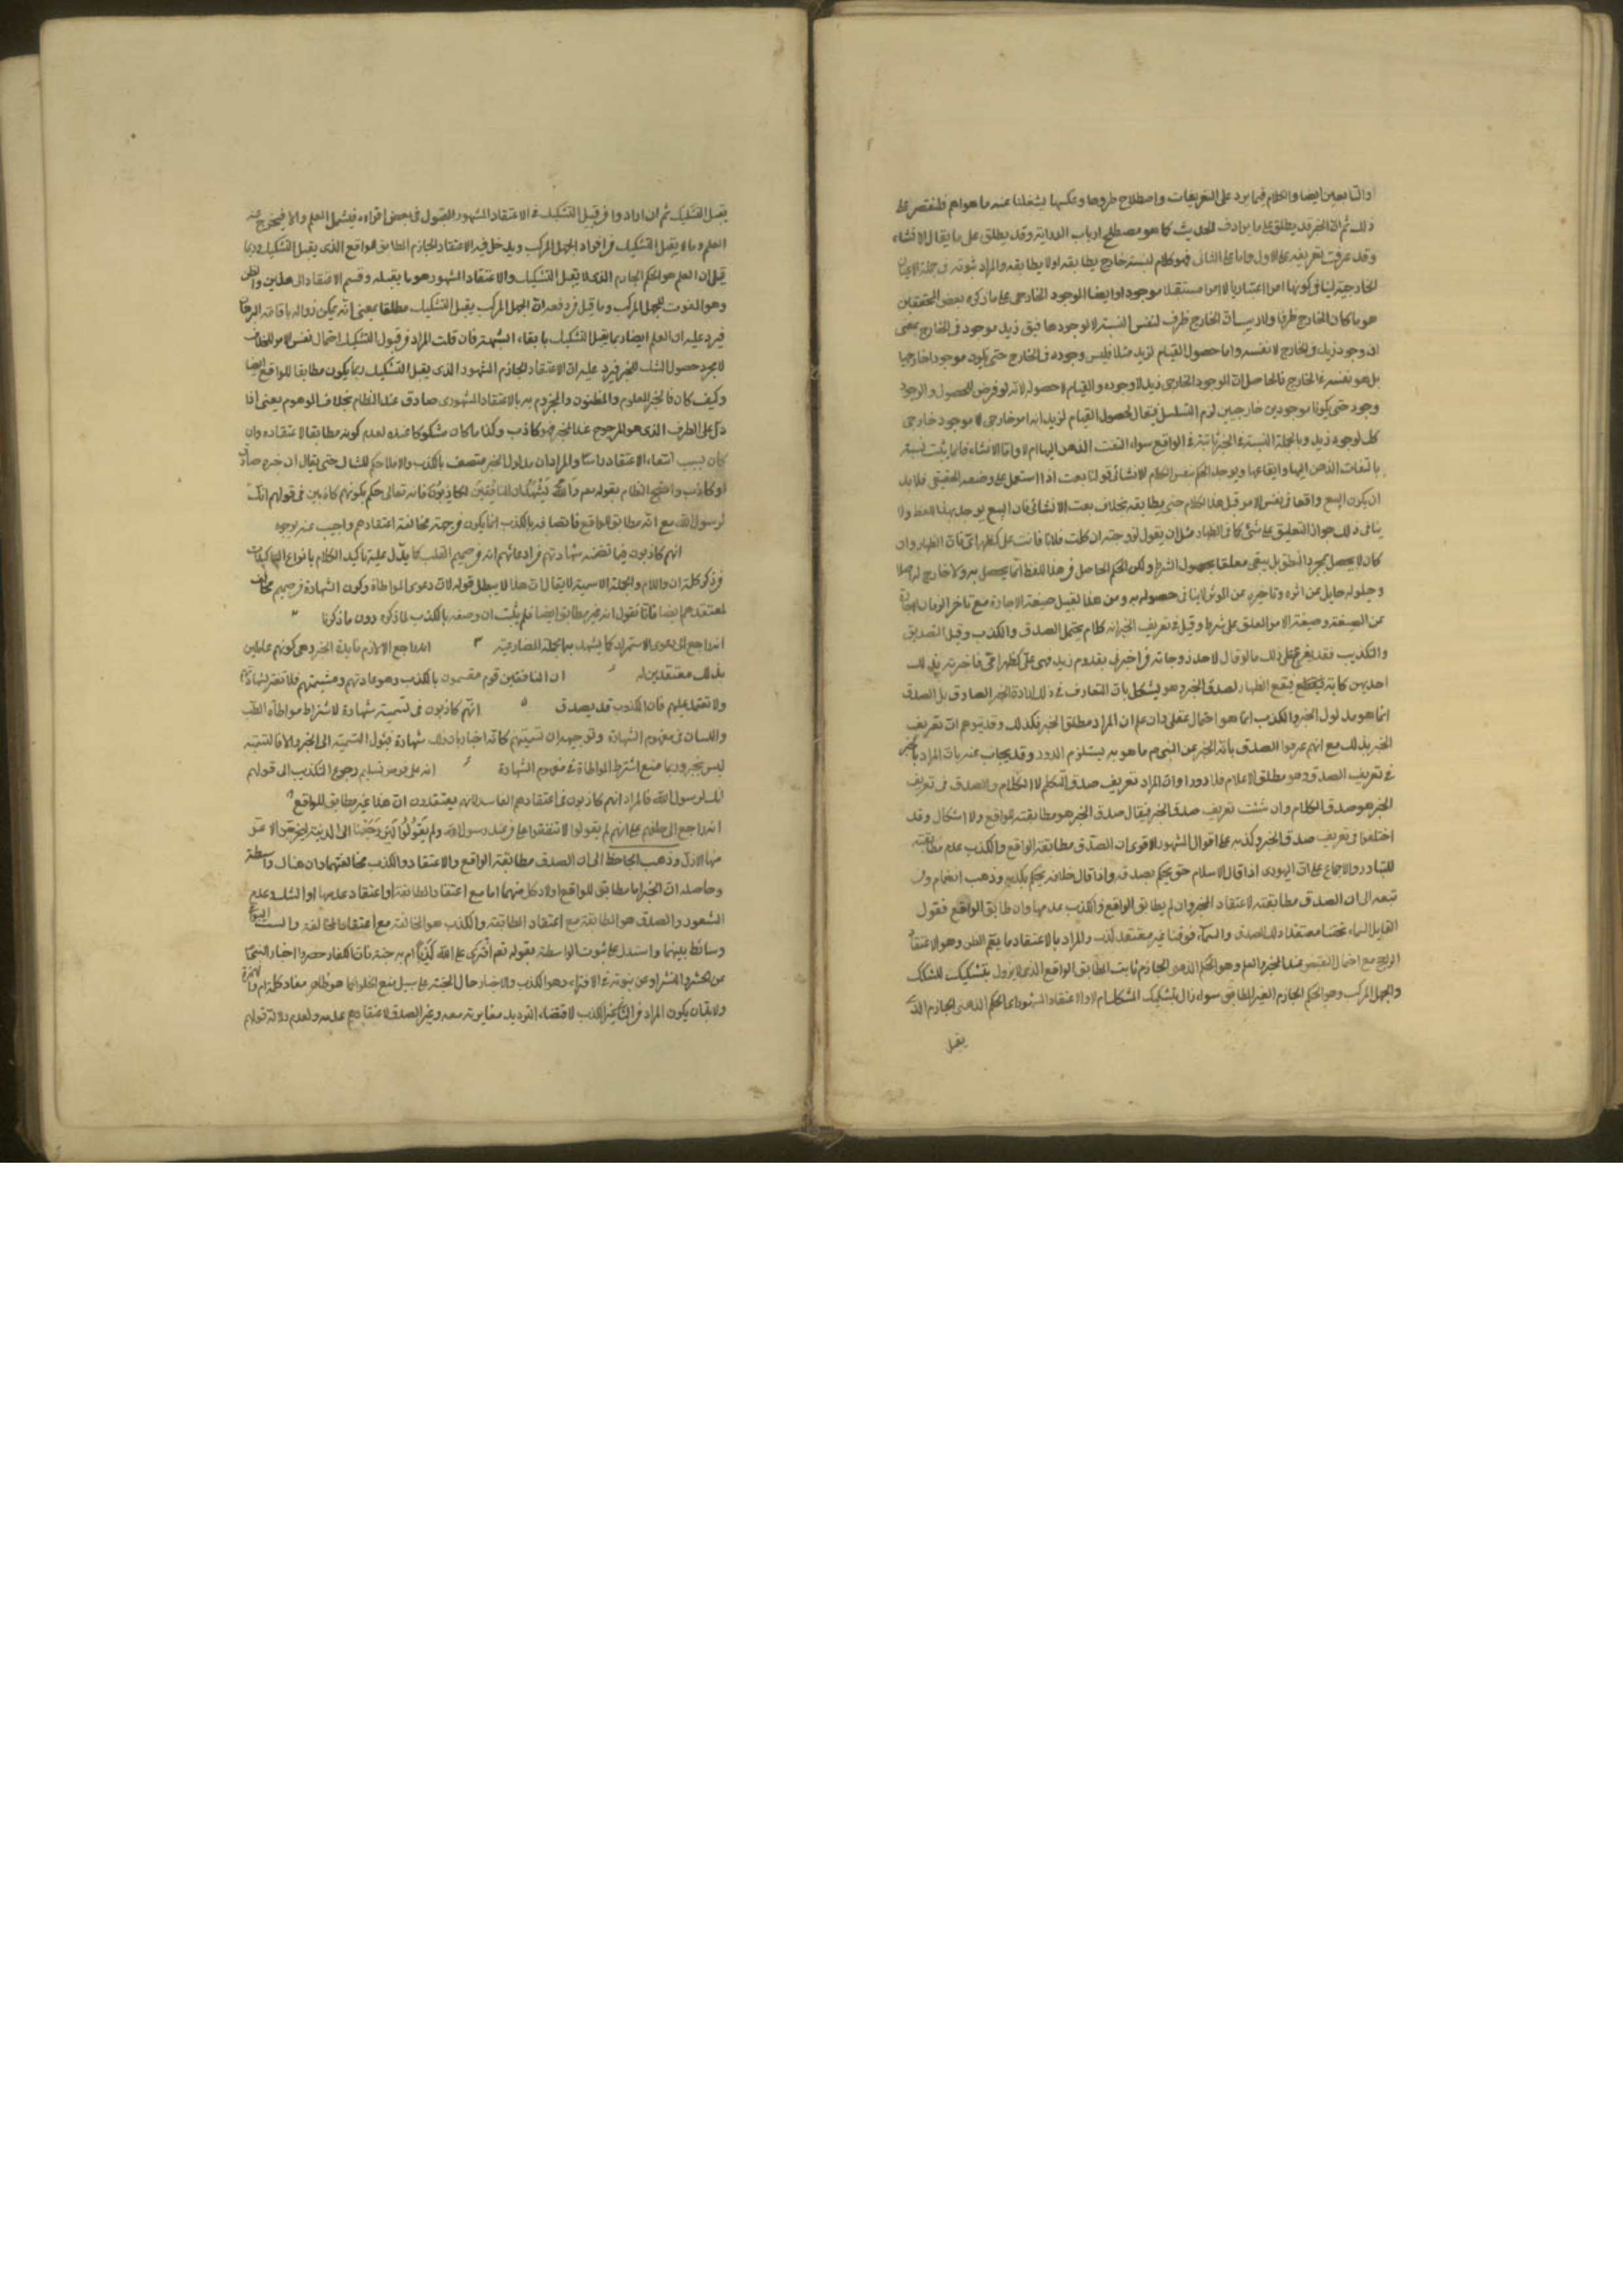 او التابعين ايضا والكلام فيما يرد على التعريفات واصطلاح طردها وعكسها يشغلنا عنه ما هو اهم فلنقتصر على
ذلك ثم ان الخبر قد يطلق على ما يرادف الحديث كما هو مصطلح ارباب الدراية وقد يطلق على ما يقابل الانشاء
وقد عرفت تعريفه على الاول واما على الثانى فهو كلام لنسبته خارج يطابقه او لا يطابقه والمراد ثبوته فى جملة الاعيان
الخارجية لينافى كونها امرا اعتباريا لا امرا مستقلا موجودا وايضا الوجود الخارجى على ما ذكره بعض المحققين
هو ما كان الخارج ظرفا ولا ريب ان الخارج ظرف لنفس النسبة لا لوجودها فيق زيد موجود فى الخارج بمعنى
ان وجود زيد فى الخارج لا نفسه واما حصول القيام لزيد مثلا فليس وجوده فى الخارج حتى يكون موجودا خارجيا
بل هو نفسه فى الخارج فالحاصل ان الوجود الخارجى زيد لا وجوده والقيام لا حصوله لانه لو فرض للحصول والوجود
وجود حتى يكونا موجودين خارجيين لزم التسلسل فيقال لحصول القيام لزيد انه امر خارجى لا موجود خارجى
كك لوجود زيد وبالجملة النسبة فى الخبر ثابتة فى الواقع سواء التفت الذهن اليها ام لا واما الانشاء فانما يثبت نسبته
بالتفات الذهن اليها وايقاعها ويوجد الحكم بنفس الكلام الانشائى قولنا بعت اذا استعمل على وضعه الحقيقى فلا بد
ان يكون البيع واقعا فى نفس الامر قبل هذا الكلام حتى يطابقه بخلاف بعت الانشائى فان البيع يوجد بهذا اللفظ ولا
ينافى ذلك جواز التعليق على شئ كما فى الظهار مثل ان يقول لزوجته ان كلمت فلانا فانت على كظهر امى فان الظهار وان
كان لا يحصل بمجرد النطق بل يبقى معلقا بحصول الشرط ولكن الحكم الحاصل فى هذا اللفظ انما يحصل به ولا خارج له اصلا
وحلوله حايل عن اثره وتاخيره عن المؤثر لا ينافى حصوله به ومن هذا القبيل صيغة الاجارة مع تاخر الزمان
عن الصيغة وصيغة الامر المعلق على شرط وقيل فى تعريف الخبر انه كلام يحتمل الصدق والكذب وقيل التصديق
والتكذيب فقد يفرع على ذلك ما لو قال لاحد زوجاته من اخبرنى بقدوم زيد فهى على كظهر امى فاخبرته بذلك
احديهن كاذبة فيقع الظهار لصدق الخبر وهو يشكل بان المتعارف فى ذلك ارادة الخبر الصادق بل الصدق
انما هو مدلول الخبر والكذب انما هو احتمال عقلى وان علم ان المراد مطلق الخبر فكذلك وقد يتوهم ان تعريف
الخبر بذلك مع انهم عرفوا الصدق بانه الخبر عن الشئ على ما هو به يستلزم الدور وقد يجاب عنه بان المراد بالخبر
فى تعريف الصدق هو مطلق الاعلام فلا دور او ان المراد تعريف صدق المتكلم لا الكلام والصدق فى تعريف
الخبر هو صدق الكلام وان شئت تعريف صدق الخبر فيقال صدق الخبر هو مطابقته للواقع ولا اشكال وقد
اختلفوا فى تعريف صدق الخبر وكذبه على اقوال المشهور الاقوى ان الصدق مطابقة الواقع والكذب عدم مطابقته
للتبادر والاجماع على ان اليهودى اذا قال الاسلام حق يحكم بصدقه واذا قال خلافه يحكم بكذبه وذهب النظام ومن
تبعه الى ان الصدق مطابقته لاعتقاد المخبر وان لم يطابق الواقع والكذب عدمها وان طابق الواقع فقول
القايل السماء تحتنا معتقدا ذلك الصدق والسماء فوقنا غير معتقد كذب والمراد بالاعتقاد ما يعم الظن وهو الاعتقاد
الراجح مع احتمال النقيض عند المخبر والعلم وهو الحكم الذهنى الجازم الثابت المطابق الواقع الذى لا يزول بتشكيك المشكك
والجهل المركب وهو الحكم الجازم الغير المطابق سواء زال بتشكيك المشكك ام لا والاعتقاد المشهور اى الحكم الذهنى الجازم الذى
يقبل
يقبل التشكيك ثم ان ارادوا من قبيل التشكيك فى الاعتقاد المشهور القبول فى بعض افراده فيشمل العلم والا فيخرج منه
العلم وما لا يقبل التشكيك من افراد الجهل المركب ويدخل فيه الاعتقاد الجازم المطابق للواقع الذى يقبل التشكيك وربما
قيل ان العلم هو الحكم الجازم الذى لا يقبل التشكيك والاعتقاد المشهور هو ما يقبله وقسم الاعتقاد الى هذين والظن
وهو المفوت للجهل المركب وما قيل فى دفعه ان الجهل المركب يقبل التشكيك مطلقا بمعنى انه يمكن زواله باقامة البرهان
فيرد عليه ان العلم ايضا ربما يقبل التشكيك بابقاء الشبهة فان قلت المراد من قبول التشكيك احتمال نفس الامر للخلاف
لا مجرد حصول الشك للمخبر فيرد عليه ان الاعتقاد الجازم المشهور الذى يقبل التشكيك ربما يكون مطابقا للواقع ايضا
وكيف كان فالخبر المعلوم والمظنون والمجزوم به بالاعتقاد المشهورى صادق عند النظام بخلاف الموهوم يعنى اذا
دل على الطرف الذى هو المرجوح عند المخبر فهو كاذب وكذا ما كان مشكوكا عنده لعدم كونه مطابقا لاعتقاده وان
كان بسبب انتفاء الاعتقاد راسا والمراد ان مدلول الخبر متصف بالكذب والا فلا حكم للشاك حتى يقال ان خبره صادق
او كاذب واحتج النظام بقوله تعم والله يشهد ان المنافقين لكاذبون فانه تعالى حكم بكونهم كاذبين فى قولهم انك
لرسول الله مع انه مطابق للواقع فاتصافه بالكذب انما يكون من جهة مخالفة اعتقادهم واجيب عنه بوجوه
انهم كاذبون فيما تضمنه شهادتهم من ادعائهم انه من صميم القلب كما يدل عليه تاكيد الكلام بانواع التاكيدات
من ذكر كلمة ان واللام والجملة الاسمية لا يقال ان هذا لا يبطل قوله لان دعوى المواطاة وكون الشهادة من صميم مخالف
لمعتقدهم ايضا فانا نقول انه غير مطابق ايضا فلم يثبت ان وصفه بالكذب لما ذكره دون ما ذكرنا ٢
انه راجع الى دعوى الاستمرار كما يشهد به الجملة المضارعية ٣ انه راجع الى لازم فايدة الخبر وهى كونهم عالمين
بذلك معتقدين له ٤ ان المنافقين قوم مقسمون بالكذب وهو عادتهم وشيمتهم فلا تغتر بشهادتهم
ولا تعتمد عليهم فان الكذوب قد يصدق ٥ انهم كاذبون فى تسميته شهادة لاشتراط مواطاة القلب
واللسان فى مفهوم الشهادة وتوجيهه ان تسميتهم كانه اخبار بان ذلك شهادة فيئول التسمية الى الخبر والا فالتسمية
ليس بخبر وربما منع اشتراط المواطاة فى مفهوم الشهادة ٦ انه على فرض تسليم رجوع التكذيب الى قولهم
انك لرسول الله فالمراد انهم كاذبون فى اعتقادهم الفاسد لانهم يعتقدون ان هذا غير مطابق للواقع
انه راجع الى حلفهم على انهم لم يقولوا لا تنفقوا على من عند رسول الله ولم يقولوا لئن رجعنا الى المدينة ليخرجن الاعز
منها الاذل وذهب الجاحظ الى ان الصدق مطابقة الواقع والاعتقاد والكذب مخالفتهما وان هناك واسطة
وحاصله ان الخبر اما مطابق للواقع او لا وكل منهما اما مع اعتقاد المطابقة او اعتقاد عدمها او الشك وعدم
الشعور والصدق هو المطابقة مع اعتقاد المطابقة والكذب هو المخالفة مع اعتقاد المخالفة والست البواقى
وسائط بينهما واستدل على ثبوت الواسطة بقوله تعم افترى على الله كذبا ام به جنة فان الكفار حصروا اخبار النبى
عن الحشر والنشر او عن نبوته فى الافتراء وهو الكذب والاخبار حال الجنة على سبيل منع الخلو كما هو ظاهر مفاد كلمة ام والهمزة
ولا بد ان يكون المراد من الثانى غير الكذب لاقتضاء الترديد مغايرته معه وغير الصدق لاعتقادهم عدمه ولعدم دلالة قولهم